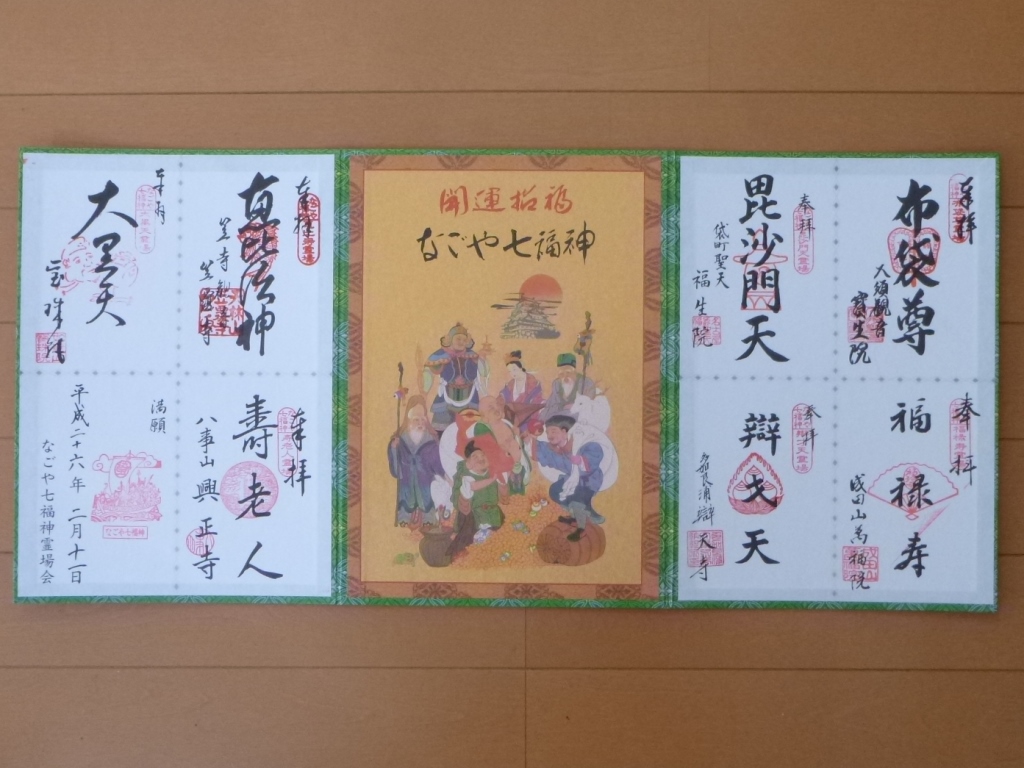 奉拝
布袋尊
大須観音
寳生院
奉拝
福禄寿
成田山萬福院
奉拝
毘沙門天
袋町聖天
福生院
奉拝
辯才天
辯天寺
開運招福
なごや七福神
奉拝
恵比須神
笠寺観音
笠覆寺
奉拝
壽老人
八事山興正寺
奉拝
大黒天
宝珠院
満願
なごや七福神
平成二十六年 二月十一日
なごや七福神霊場会